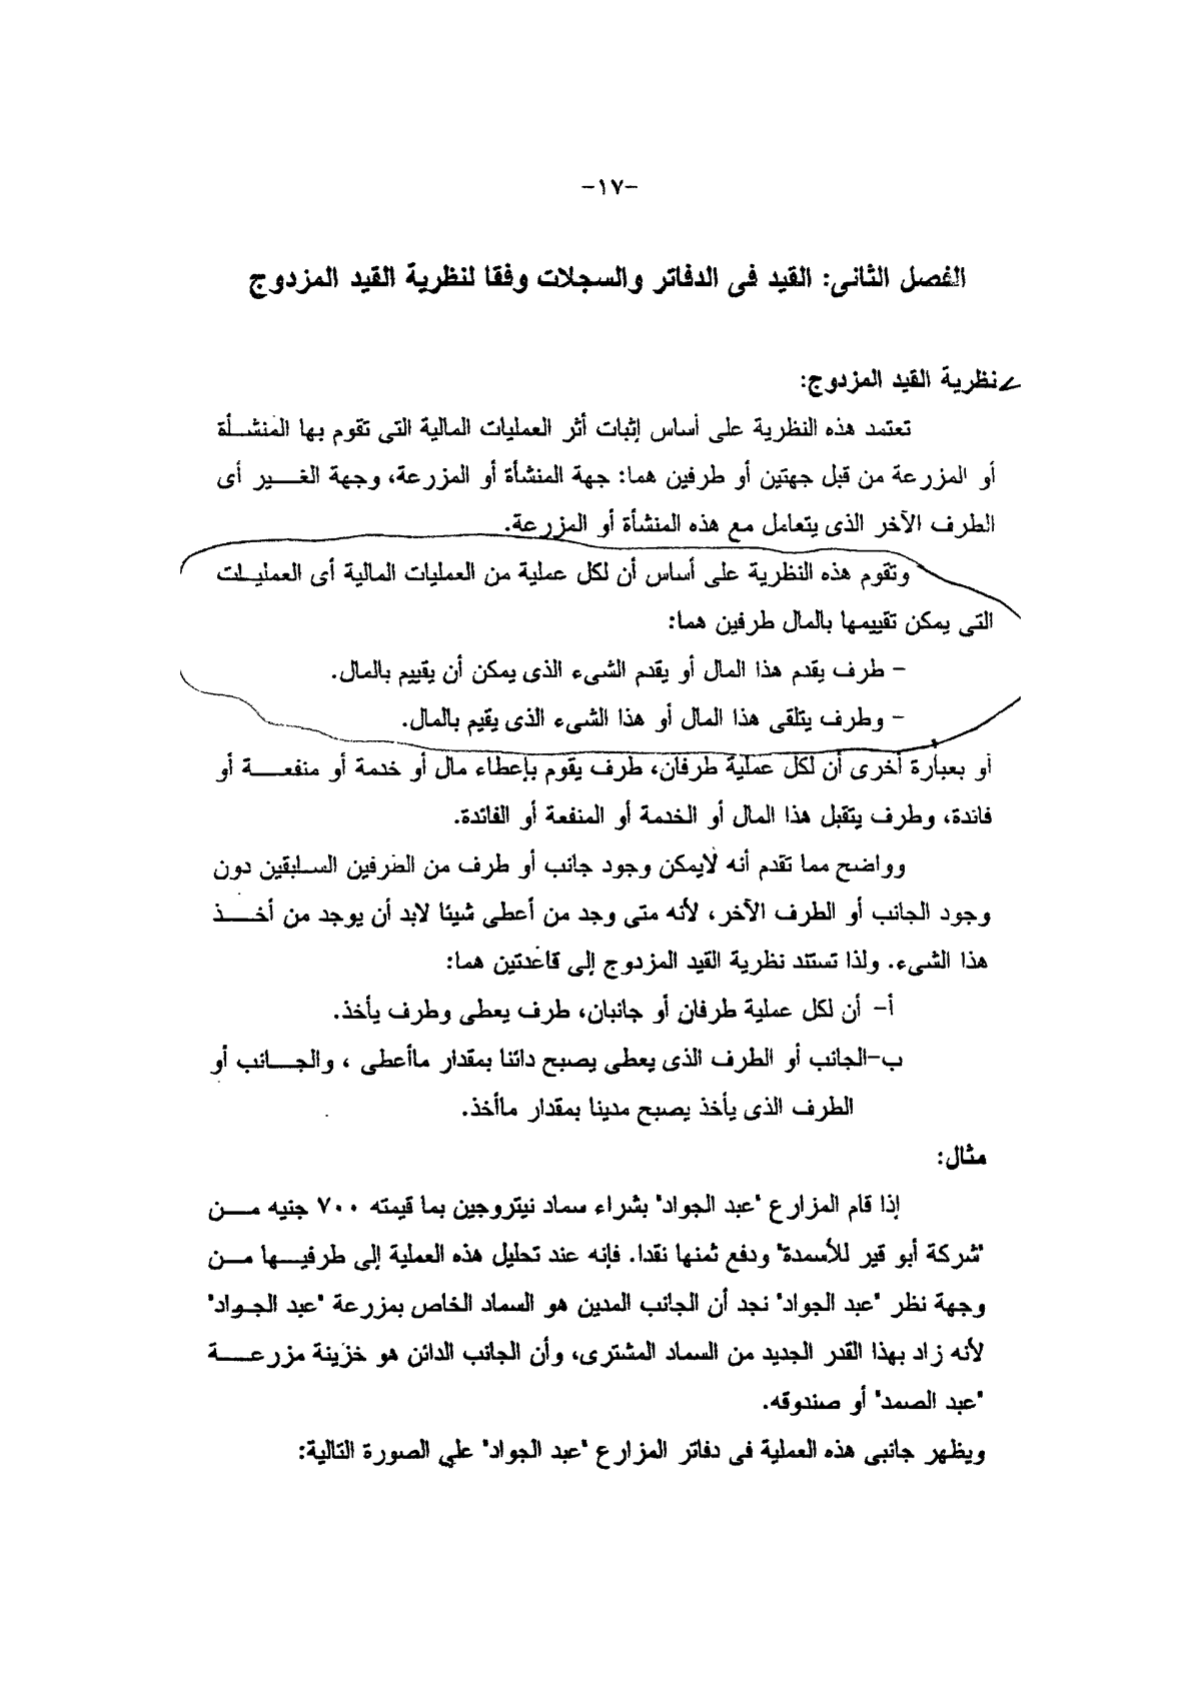 -١٧-
الفصل الثانى: القيد فى الدفاتر والسجلات وفقا لنظرية القيد المزدوج
نظرية القيد المزدوج:
تعتمد هذه النظرية على أساس إثبات أثر العمليات المالية التى تقوم بها المنشأة
أو المزرعة من قبل جهتين أو طرفين هما: جهة المنشأة أو المزرعة، وجهة الغير أى
الطرف الآخر الذى يتعامل مع هذه المنشأة أو المزرعة.
وتقوم هذه النظرية على أساس أن لكل عملية من العمليات المالية أى العمليات
التى يمكن تقييمها بالمال طرفين هما:
- طرف يقدم هذا المال أو يقدم الشىء الذى يمكن أن يقييم بالمال.
- وطرف يتلقى هذا المال أو هذا الشىء الذى يقيم بالمال.
أو بعبارة أخرى أن لكل عملية طرفان، طرف يقوم بإعطاء مال أو خدمة أو منفعة أو
فائدة، وطرف يتقبل هذا المال أو الخدمة أو المنفعة أو الفائدة.
وواضح مما تقدم أنه لايمكن وجود جانب أو طرف من الطرفين السابقين دون
وجود الجانب أو الطرف الآخر، لأنه متى وجد من أعطى شيئا لابد أن يوجد من أخذ
هذا الشىء. ولذا تستند نظرية القيد المزدوج إلى قاعدتين هما:
أ- أن لكل عملية طرفان أو جانبان، طرف يعطى وطرف يأخذ.
ب-الجانب أو الطرف الذى يعطى يصبح دائنا بمقدار ماأعطى ، والجانب أو
الطرف الذى يأخذ يصبح مدينا بمقدار ماأخذ.
مثال:
إذا قام المزارع "عبد الجواد" بشراء سماد نيتروجين بما قيمته ٧٠٠ جنيه من
"شركة أبو قير للأسمدة" ودفع ثمنها نقدا. فإنه عند تحليل هذه العملية إلى طرفيها من
وجهة نظر "عبد الجواد" نجد أن الجانب المدين هو السماد الخاص بمزرعة "عبد الجواد"
لأنه زاد بهذا القدر الجديد من السماد المشترى، وأن الجانب الدائن هو خزينة مزرعة
"عبد الصمد" أو صندوقه.
ويظهر جانبى هذه العملية فى دفاتر المزارع "عبد الجواد" على الصورة التالية: